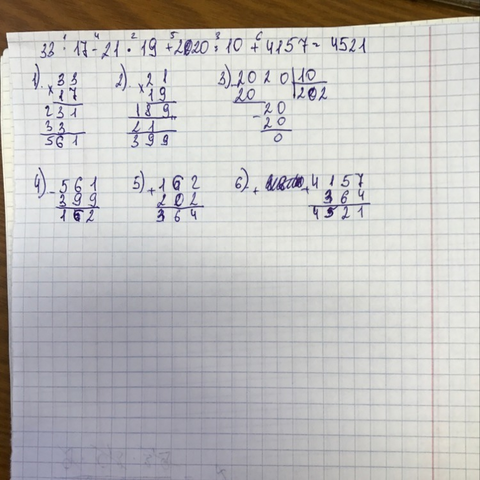 1 4 2 5 3 6
33 · 17 - 21 · 19 + 2020 : 10 + 4157 = 4521
1) 33 2) 21 3) - 2020 | 10
× 17 × 19 20 202
231 189 - 20
33 21 20
561 399 0
4) - 561 5) + 162 6) + + 4157
399 202 364
162 364 4521